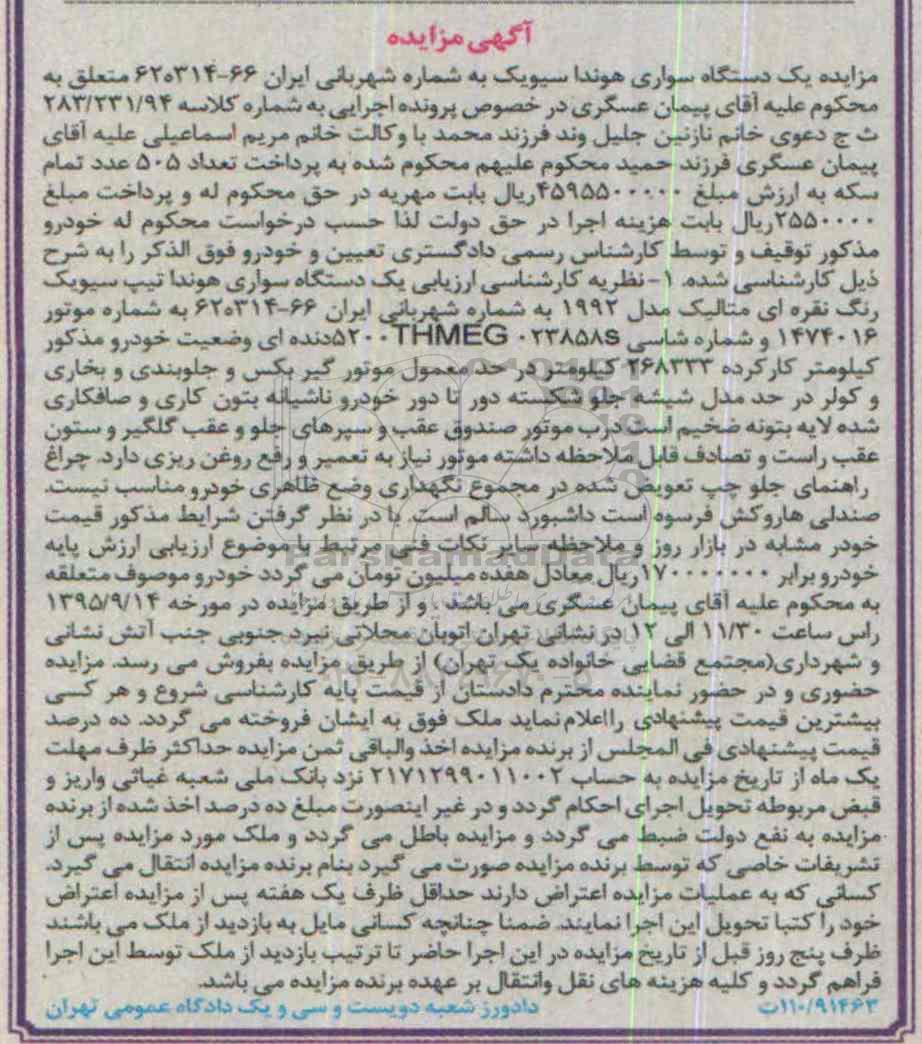 آگهی مزایده
مزایده یک دستگاه سواری هوندا سیویک به شماره شهربانی ایران ۶۶-۳۱۴ه۶۲ متعلق به
محکوم علیه آقای پیمان عسگری در خصوص پرونده اجرایی به شماره کلاسه ۲۸۳/۲۳۱/۹۴
ث ج دعوی خانم نازنین جلیل وند فرزند محمد با وکالت خانم مریم اسماعیلی علیه آقای
پیمان عسگری فرزند حمید محکوم علیهم محکوم شده به پرداخت تعداد ۵۰۵ عدد تمام
سکه به ارزش مبلغ ۴۵۹۵۵۰۰۰۰۰ریال بابت مهریه در حق محکوم له و پرداخت مبلغ
۲۵۵۰۰۰۰ریال بابت هزینه اجرا در حق دولت لذا حسب درخواست محکوم له خودرو
مذکور توقیف و توسط کارشناس رسمی دادگستری تعیین و خودرو فوق الذکر را به شرح
ذیل کارشناسی شده. ۱- نظریه کارشناسی ارزیابی یک دستگاه سواری هوندا تیپ سیویک
رنگ نقره ای متالیک مدل ۱۹۹۲ به شماره شهربانی ایران ۶۶-۳۱۴ه۶۲ به شماره موتور
۱۴۷۴۰۱۶ و شماره شاسی THMEG ۰۲۳۸۵۸s۵۲۰۰دنده ای وضعیت خودرو مذکور
کیلومتر کارکرده ۲۶۸۳۳۳ کیلومتر در حد معمول موتور گیر بکس و جلوبندی و بخاری
و کولر در حد مدل شیشه جلو شکسته دور تا دور خودرو ناشیانه بتون کاری و صافکاری
شده لایه بتونه ضخیم است درب موتور صندوق عقب و سپرهای جلو و عقب گلگیر و ستون
عقب راست و تصادف قابل ملاحظه داشته موتور نیاز به تعمیر و رفع روغن ریزی دارد. چراغ
راهنمای جلو چپ تعویض شده در مجموع نگهداری وضع ظاهری خودرو مناسب نیست.
صندلی هاروکش فرسوده است داشبورد سالم است. با در نظر گرفتن شرایط مذکور قیمت
خودر مشابه در بازار روز و ملاحظه سایر نکات فنی مرتبط با موضوع ارزیابی ارزش پایه
خودرو برابر ۱۷۰۰۰۰۰۰۰ریال معادل هفده میلیون تومان می گردد خودرو موصوف متعلقه
به محکوم علیه آقای پیمان عسگری می باشد . و از طریق مزایده در مورخه ۱۳۹۵/۹/۱۴
راس ساعت ۱۱/۳۰ الی ۱۲ در نشانی تهران اتوبان محلاتی نبرد جنوبی جنب آتش نشانی
و شهرداری(مجتمع قضایی خانواده یک تهران) از طریق مزایده بفروش می رسد. مزایده
حضوری و در حضور نماینده محترم دادستان از قیمت پایه کارشناسی شروع و هر کسی
بیشترین قیمت پیشنهادی رااعلام نماید ملک فوق به ایشان فروخته می گردد. ده درصد
قیمت پیشنهادی فی المجلس از برنده مزایده اخذ والباقی ثمن مزایده حداکثر ظرف مهلت
یک ماه از تاریخ مزایده به حساب ۲۱۷۱۲۹۹۰۱۱۰۰۲ نزد بانک ملی شعبه غیاثی واریز و
قبض مربوطه تحویل اجرای احکام گردد و در غیر اینصورت مبلغ ده درصد اخذ شده از برنده
مزایده به نفع دولت ضبط می گردد و مزایده باطل می گردد و ملک مورد مزایده پس از
تشریفات خاصی که توسط برنده مزایده صورت می گیرد بنام برنده مزایده انتقال می گیرد.
کسانی که به عملیات مزایده اعتراض دارند حداقل ظرف یک هفته پس از مزایده اعتراض
خود را کتبا تحویل این اجرا نمایند. ضمنا چنانچه کسانی مایل به بازدید از ملک می باشند
ظرف پنج روز قبل از تاریخ مزایده در این اجرا حاضر تا ترتیب بازدید از ملک توسط این اجرا
فراهم گردد و کلیه هزینه های نقل وانتقال بر عهده برنده مزایده می باشد.
۱۱۰/۹۱۴۶۳ت دادورز شعبه دویست و سی و یک دادگاه عمومی تهران
ParsNamadData